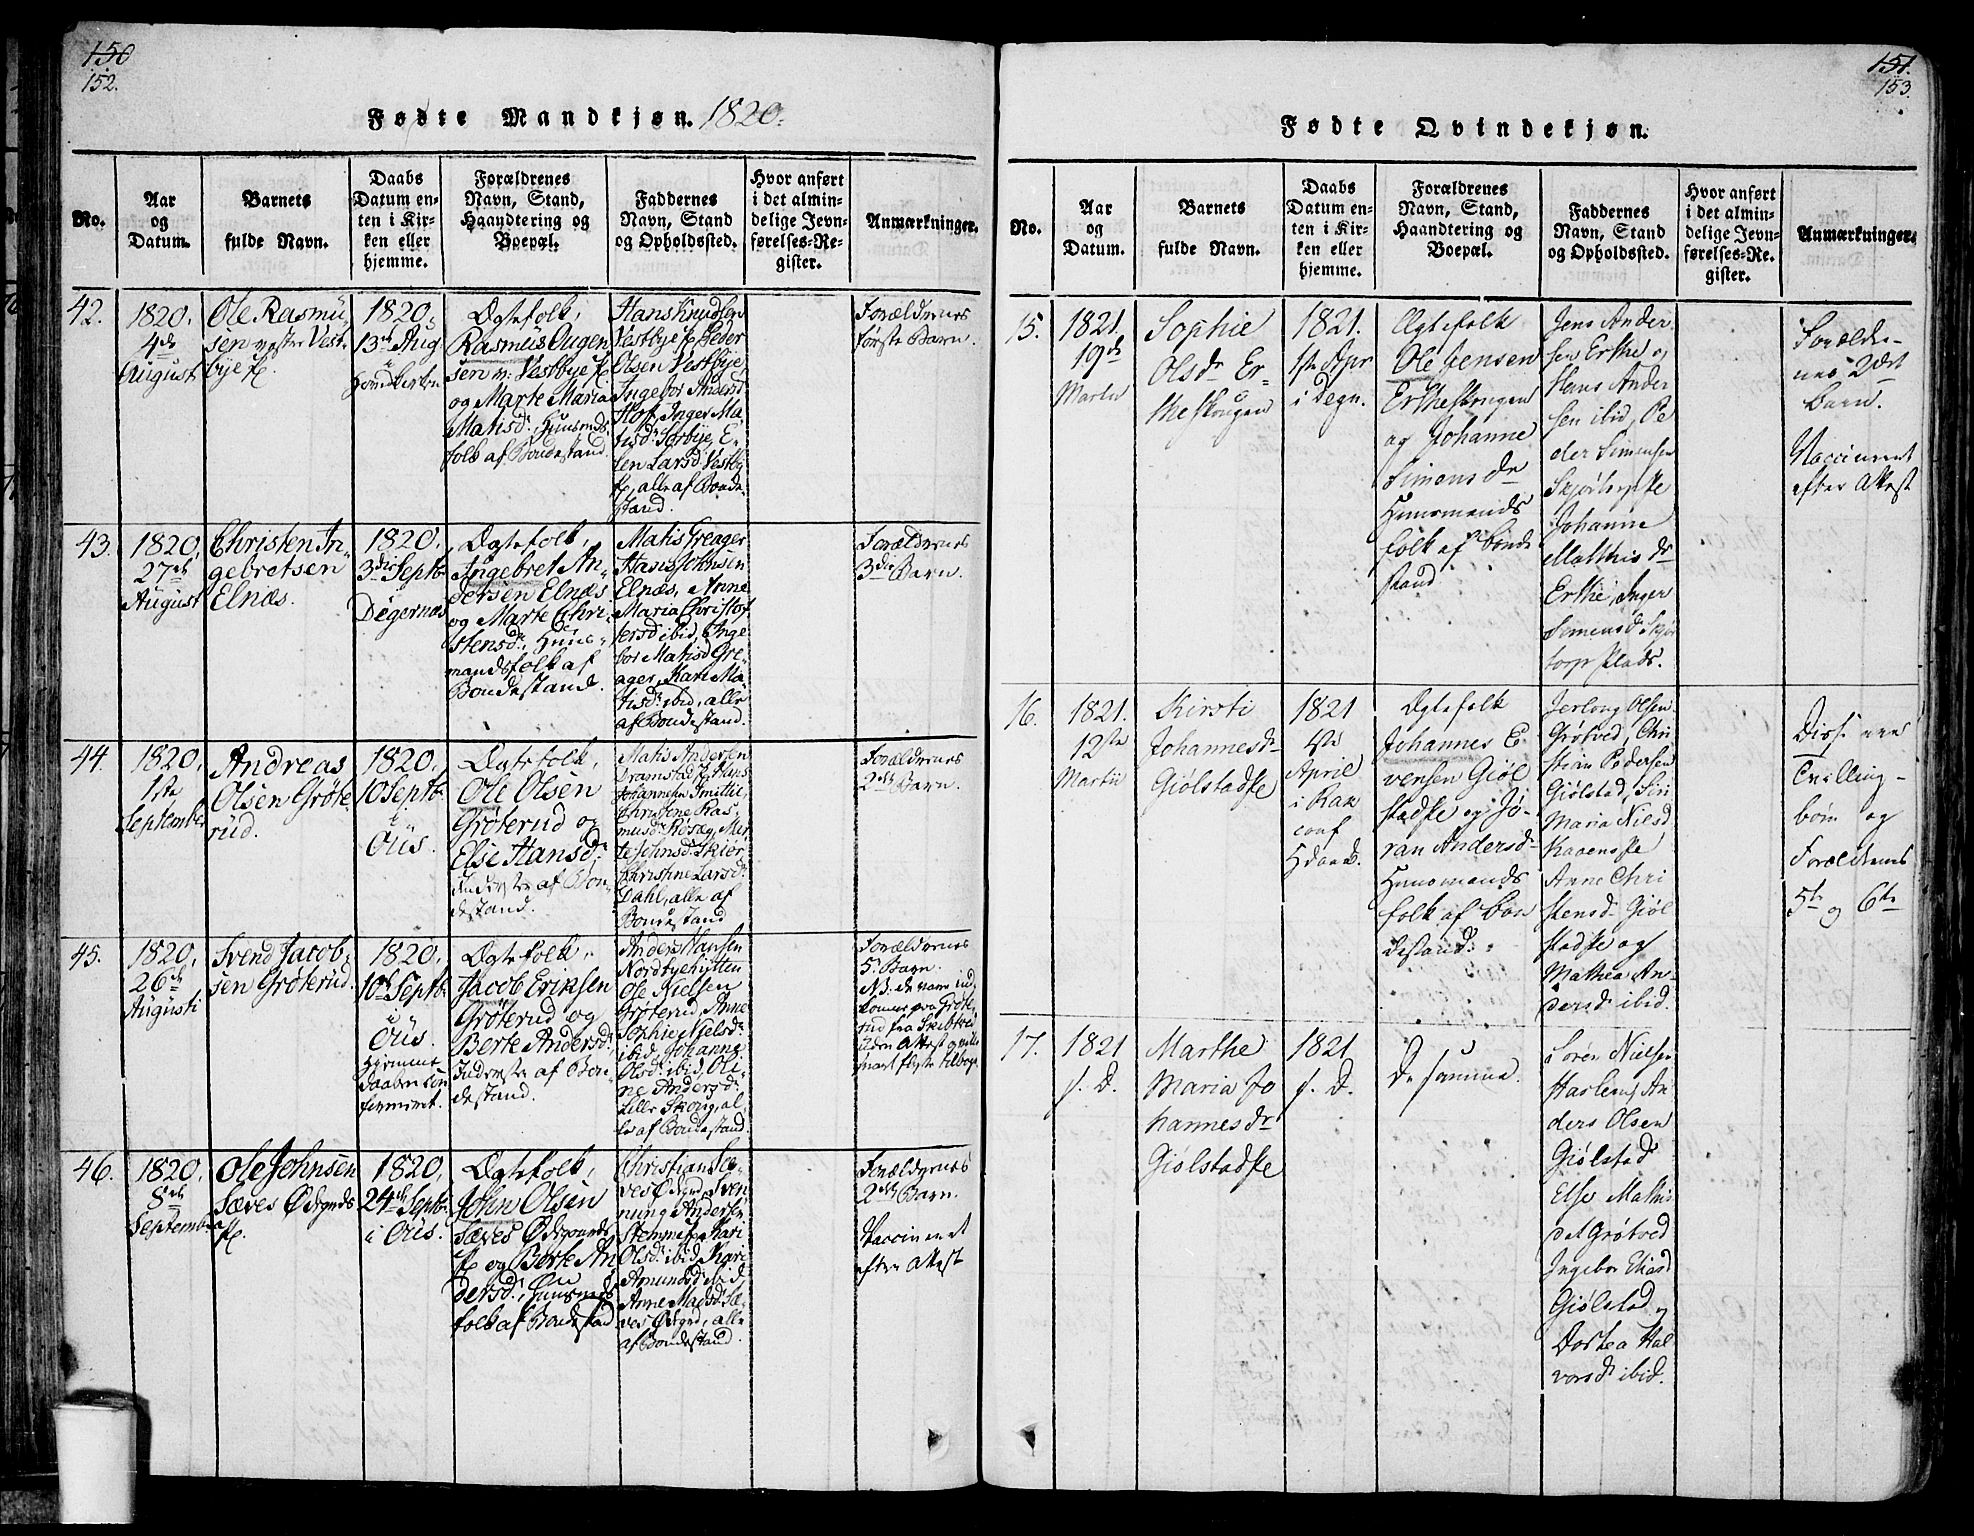 150
152.
Fødte Mandkjøn. 1820.
No.
Aar
og
Datum.
Barnets
fulde Navn.
Daabs
Datum en-
ten i Kir-
ken eller
hjemme.
Forældrenes
Navn, Stand,
Haandtering og
Boepæl.
Faddernes
Navn, Stand
og Opholdssted.
Hvor anført
i det almin-
delige Jevn-
førelses-Re-
gister.
Anmærkninger.
42.
1820.
4de
August
Ole Rasmu
sen Vest-
bye
1820.
13de Aug
Ægtefolk,
Rasmus Ougen
sen Vestbye
og Marte Maria
Matisd. Huusmds
folk af Bondestand.
Hans Knudsen
Vestbye Peder
Olsen Vestbye,
Ingebor Anders
Inger Ma
tisd. Sørbye, E-
len Larsd. Vestby
alle af Bonde
stand.
Forældrenes
første Barn.
43.
1820.
27de
August
Christen In-
gebretsen
Elnæs.
1820.
3die Septb.
Degernæs
Ægtefolk,
Ingebret An-
dersen Elnæs
og Marte Chri-
stensd. Huus-
mandsfolk af
Bondestand.
Matis Greager
Hans Johnsen
Elnæs, Anne
Maria Christof
fersd ibid, Inge
bor Matisd Gre-
ager, Kari Ma-
tisd. ibid, alle
af Bondestand.
Forældrenes
3die Barn.
44.
1820.
1ste
September
Andreas
Olsen Grøte-
rud.
1820.
10 Septb.
i
Øiis.
Ægtefolk,
Ole Olsen
Grøterud og
Else Hansd.
Inderster af Bon-
destand.
Matis Andersen
Dramstad Hans
Johannesen
Christene Ras-
musd.
te Johnsd. Skiør
Christine Larsd.
Dahl, alle af
Bondestand
Forældrenes
2det Barn.
45.
1820.
26de
Augusti
Svend Jacob-
sen Grøterud.
1820.
10de Septb.
i
Øiis.
Hjemme
daaben con
firmeret.
Ægtefolk,
Jacob Eriksen
Grøterud og
Berte Andersd.
Inderster af Bon-
destand.
Anders Hansen
Nordbyehytten
Ole Nielsen
Grøterud, Anne
Sophie Nielsd.
ibid, Johanne
Olsd. ibid, Oli-
ne Andersd.
Lille Skoug, al-
le af Bondestand.
Forældrenes
5. Barn.
NB. de vare ind
komne paa Grøte-
rud fra Skibtved
uden Attest
46.
1820.
8de
Septemb.
Ole Johnsen
Sæves Ødegrds
1820,
24de Septb.
i Øiis.
Ægtefolk,
John Olsen
Sæves Ødegaards
og Berte An
dersd. Huusmds
folk af Bondestand
Christian Sæ-
ves Ødegrd Sven
nung Andersen
Stemme Kari
Olsd. ibid, Kari
Amundsd ibid,
Anne Madsd. Sæ-
ves Ødegrd, alle
af Bondestand.
Forældrenes
2det Barn.
Vaccineret
efter Attest
151.
153.
Fødte Qvindekjøn.
No.
Aar
og
Datum.
Barnets
fulde Navn.
Daabs
Datum en-
ten i Kir-
ken eller
hjemme.
Forældrenes
Navn, Stand,
Haandtering og
Boepæl.
Faddernes
Navn, Stand
og Opholdssted.
Hvor anført
i det almin-
delige Jevn-
førelses-Re-
gister.
Anmærkninger.
15.
1821.
19de
Martii
Sophie
Olsdr Er-
theskougen
1821.
1ste Apr
i Degn.
Ægtefolk
Ole Jensen
Ertheskougen
og Johanne
Simensdr
Huusmands
folk af bonde
stand
Jens Ander
sen Erthe og
Hans Ander
sen ibid, Pe
der Simensen
Johanne
Matthisdr
Erthe, Inger
Simensdr Skjør
torp Plads.
Forældre-
nes 2det
Barn.
Vaccineret
efter Attest
16.
1821.
12ste
Martii
Kirsti
Johannesdr
Giølstadpe
1821
1ste
April
i Rak
conf
Hdaab.
Ægtefolk
Johannes E
vensen Giøl
stadpe og Jø-
ran Andersdr
Huusmands
folk af bon
destand.
Olsen
Grøtved, Chri
stian Pedersen
Giølstad, Siri
Maria Nielsd
Anne Chri
stensd Giøl
stadpe og
Mathea An-
dersdr ibid.
Disse ere
Tvilling-
børn og
Forældrenes
5te og 6te
17.
1821
s. D.
Marthe
Maria Jo
hannesdr
Giølstadpe
1821
s. D.
De samme.
Søren Nielsen
Haslem, An
ders Olsen
Giølstad
Else Mathis
dat Grøtved
Ingebor Eliasd
Giølstad og
Dorthea Hal
vorsdr ibid.